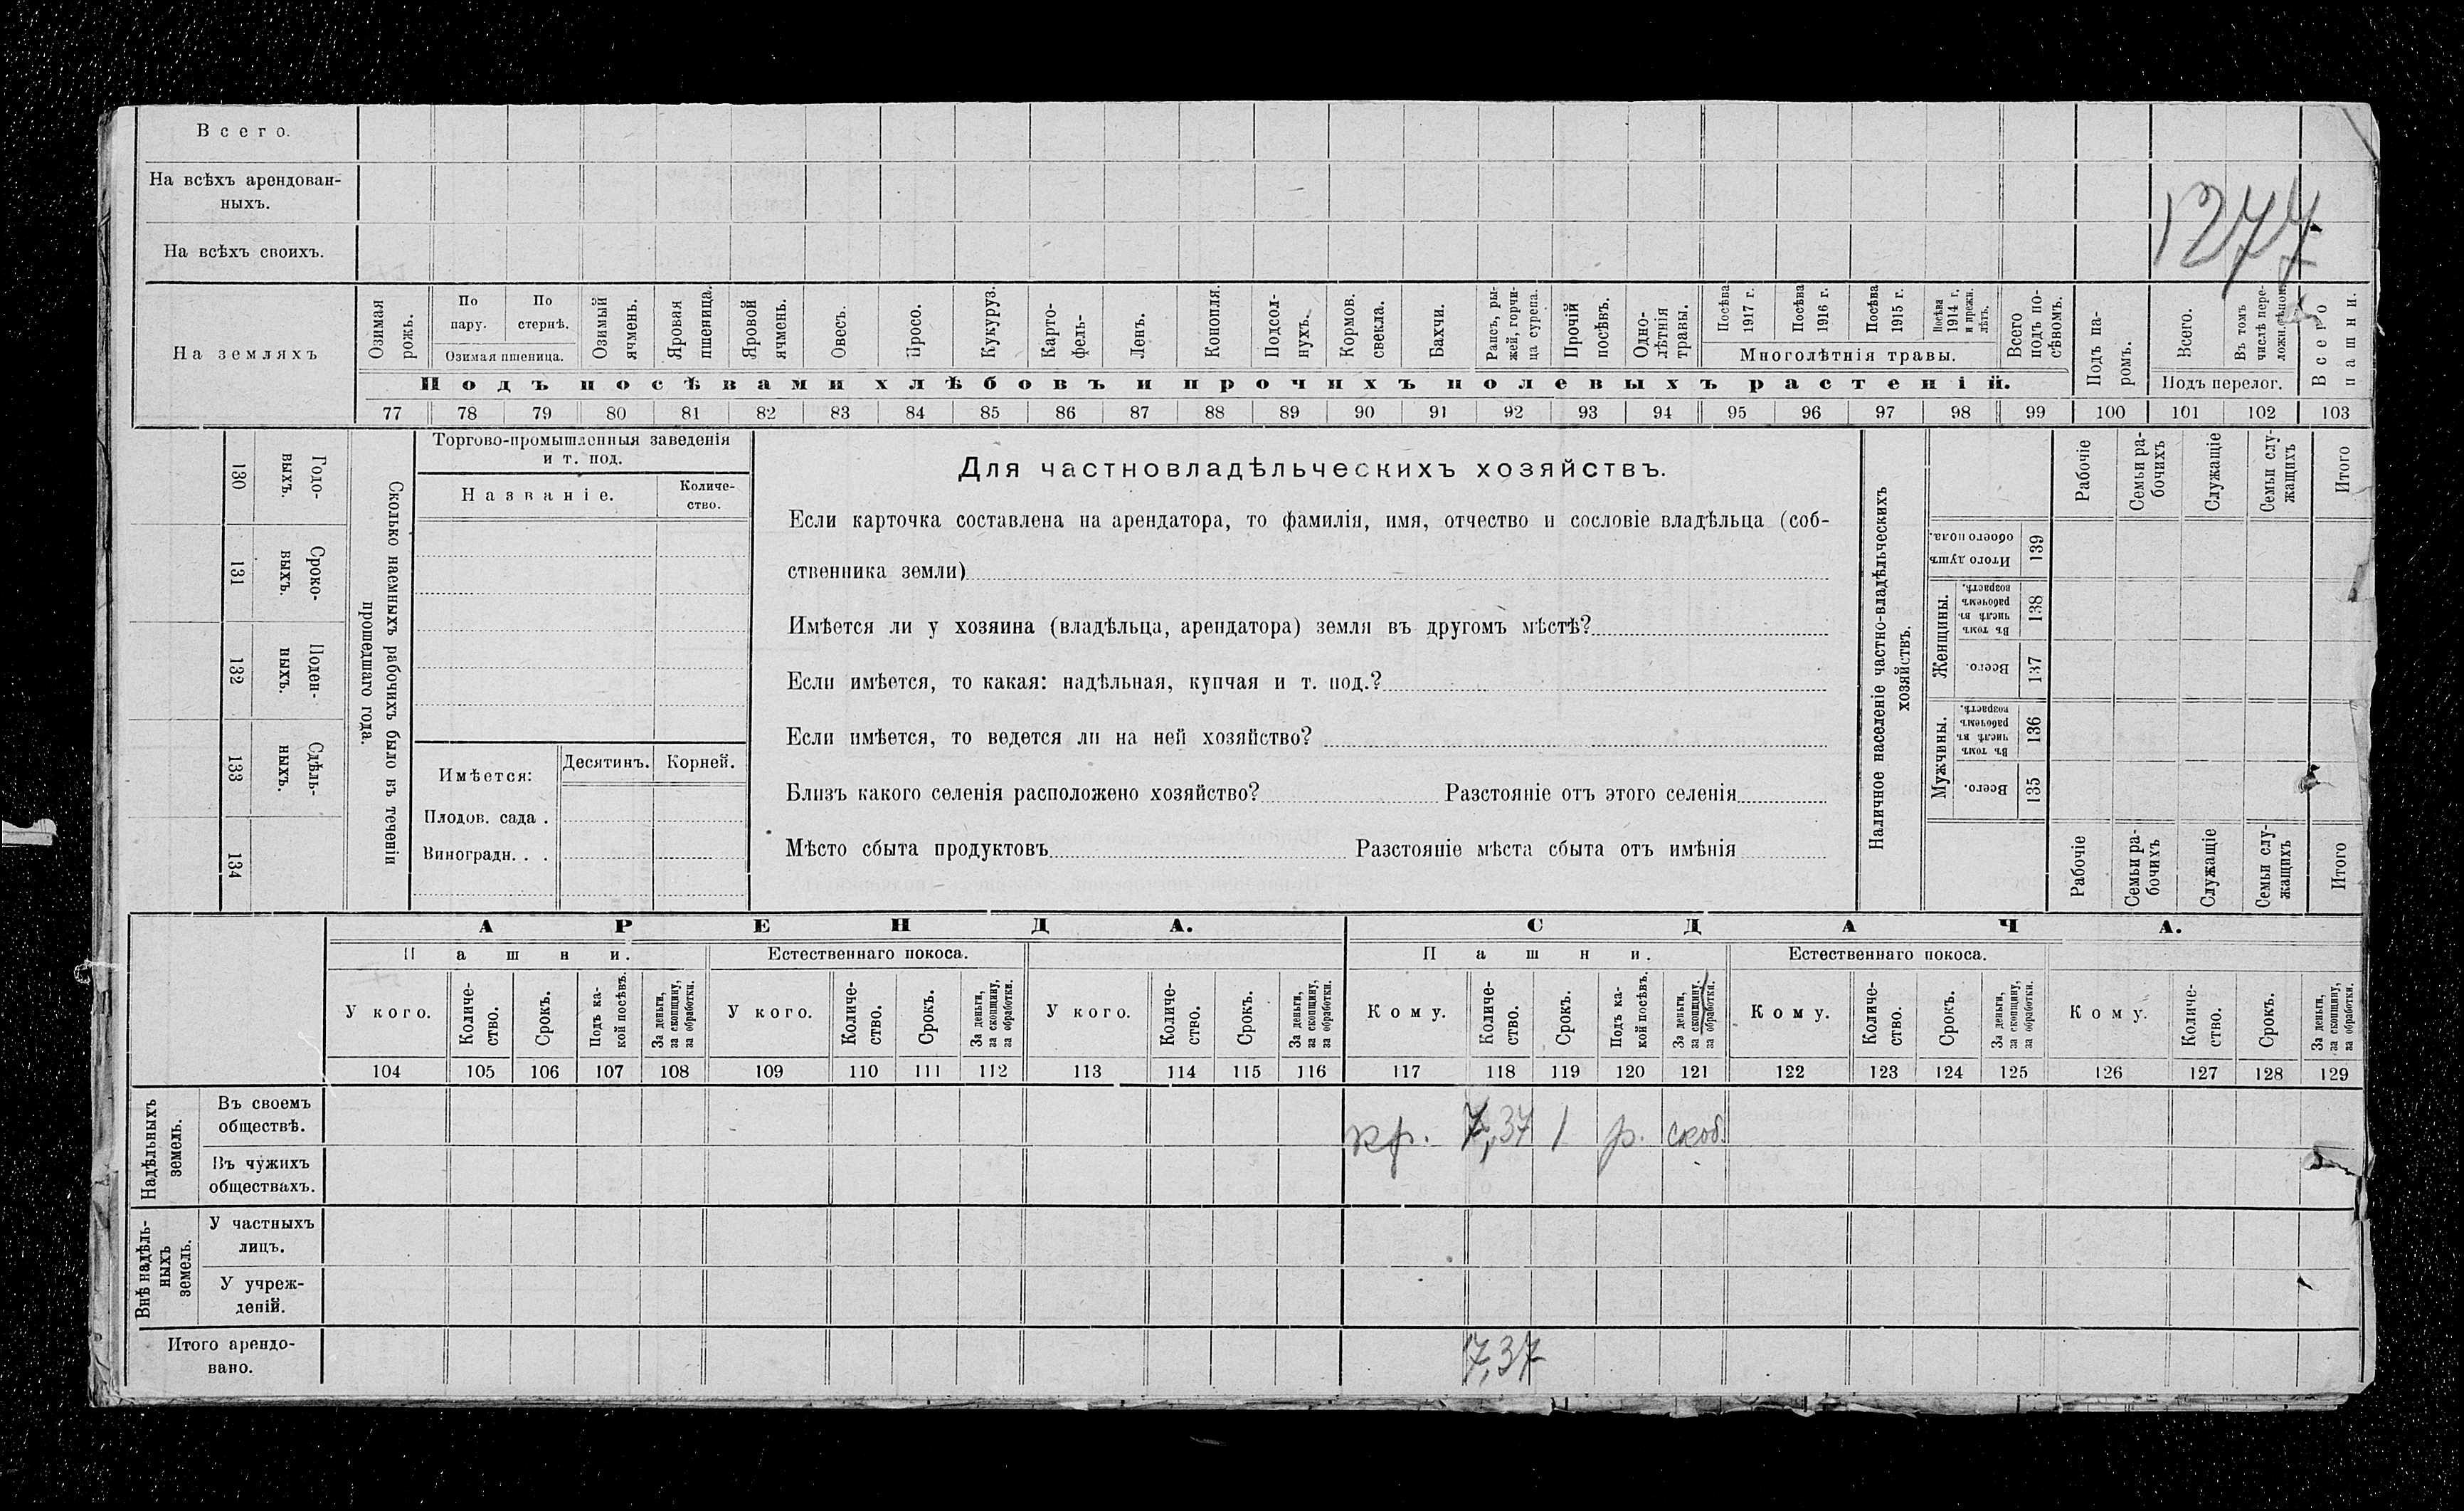 Всего.
На всѣхъ арендован-
ныхъ.
На всѣхъ своихъ.
1277
На земляхъ
Озимая рожь.
По пару.
По стернѣ.
Озимая пшеница.
Озимый ячмень.
Яровая пшеница.
Яровой ячмень.
Овесъ.
Просо.
Кукуруз.
Карто-
фель-
Ленъ.
Конопля.
Подсол-
нухъ.
Кормов. свекла.
Бахчи.
Рапсъ, ры-
жей, горчи-
ца сурепа.
Прочій посѣвъ.
Одно-
лѣтнія травы.
Посѣва 1917 г.
Посѣва 1916 г.
Посѣва 1915 г.
Посѣва 1914 г. и прежн. лѣтъ.
Многолѣтнія травы.
Всего подъ по-
сѣвомъ.
Подъ па-
ромъ.
Всего.
Въ томъ числѣ пере-
Подъ перелог.
Всего пашни.
Подъ посѣвами хлѣбовъ и прочихъ полевыхъ растеній.
77 78 79 80 81 82 83 84 85 86 87 88 89 90 91 92 93 94 95 96 97 98 99 100 101 102 103
130 Годо-
выхъ.
131 Сроко-
выхъ.
132 Поден-
ныхъ.
133 Сдѣль-
ныхъ.
134
Сколько наемныхъ рабочихъ было въ теченіи
прошедшаго года.
Торгово-промышленныя заведенія
и т. под.
Названіе.
Количе-
ство.
Имѣется:
Десятинъ. Корней.
Плодов. сада .
Виноградн. . .
Для частновладѣльческихъ хозяйствъ.
Если карточка составлена на арендатора, то фамилія, имя, отчество и сословіе владѣльца (соб-
ственника земли)
Имѣется ли у хозяина (владѣльца, арендатора) земля въ другомъ мѣстѣ?
Если имѣется, то какая: надѣльная, купчая и т. под.?
Если имѣется, то ведется ли на ней хозяйство?
Близъ какого селенія расположено хозяйство? Разстояніе отъ этого селенія
Мѣсто сбыта продуктовъ Разстояніе мѣста сбыта отъ имѣнія
Наличное населеніе частно-владѣльческихъ
хозяйствъ.
Рабочіе
Семьи ра-
бочихъ
Служащіе
Семьи слу-
жащихъ
Итого
Итого душъ обоего пола. 139
Женщины.
Въ томъ числѣ въ рабочемъ возрастѣ. 138
Всего. 137
Мужчины.
Въ томъ числѣ въ рабочемъ возрастѣ. 136
Всего. 135
Рабочіе
Семьи ра-
бочихъ
Служащіе
Семьи слу-
жащихъ
Итого
АРЕНДА. СДАЧА.
Пашни. Естественнаго покоса. Пашни. Естественнаго покоса.
У кого.
Количе-
ство.
Срокъ.
Подъ ка-
кой посѣвъ.
За деньги,
за скопщину,
за обработки.
У кого.
Количе-
ство.
Срокъ.
За деньги,
за скопщину,
за обработки.
У кого.
Количе-
ство.
Срокъ.
За деньги,
за скопщину,
за обработки.
Кому.
Количе-
ство.
Срокъ.
Подъ ка-
кой посѣвъ.
За деньги,
за скопщину,
за обработки.
Кому.
Количе-
ство.
Срокъ.
За деньги,
за скопщину,
за обработки.
Кому.
Количе-
ство.
Срокъ.
За деньги,
за скопщину,
за обработки.
104 105 106 107 108 109 110 111 112 113 114 115 116 117 118 119 120 121 122 123 124 125 126 127 128 129
Надѣльныхъ
земель.
Въ своемъ
обществѣ.
кр. 7,37 1 р. скоп.
Въ чужихъ
обществахъ.
Внѣ надѣль-
ныхъ
земель.
У частныхъ
лицъ.
У учреж-
деній.
Итого арендо-
вано.
7,37